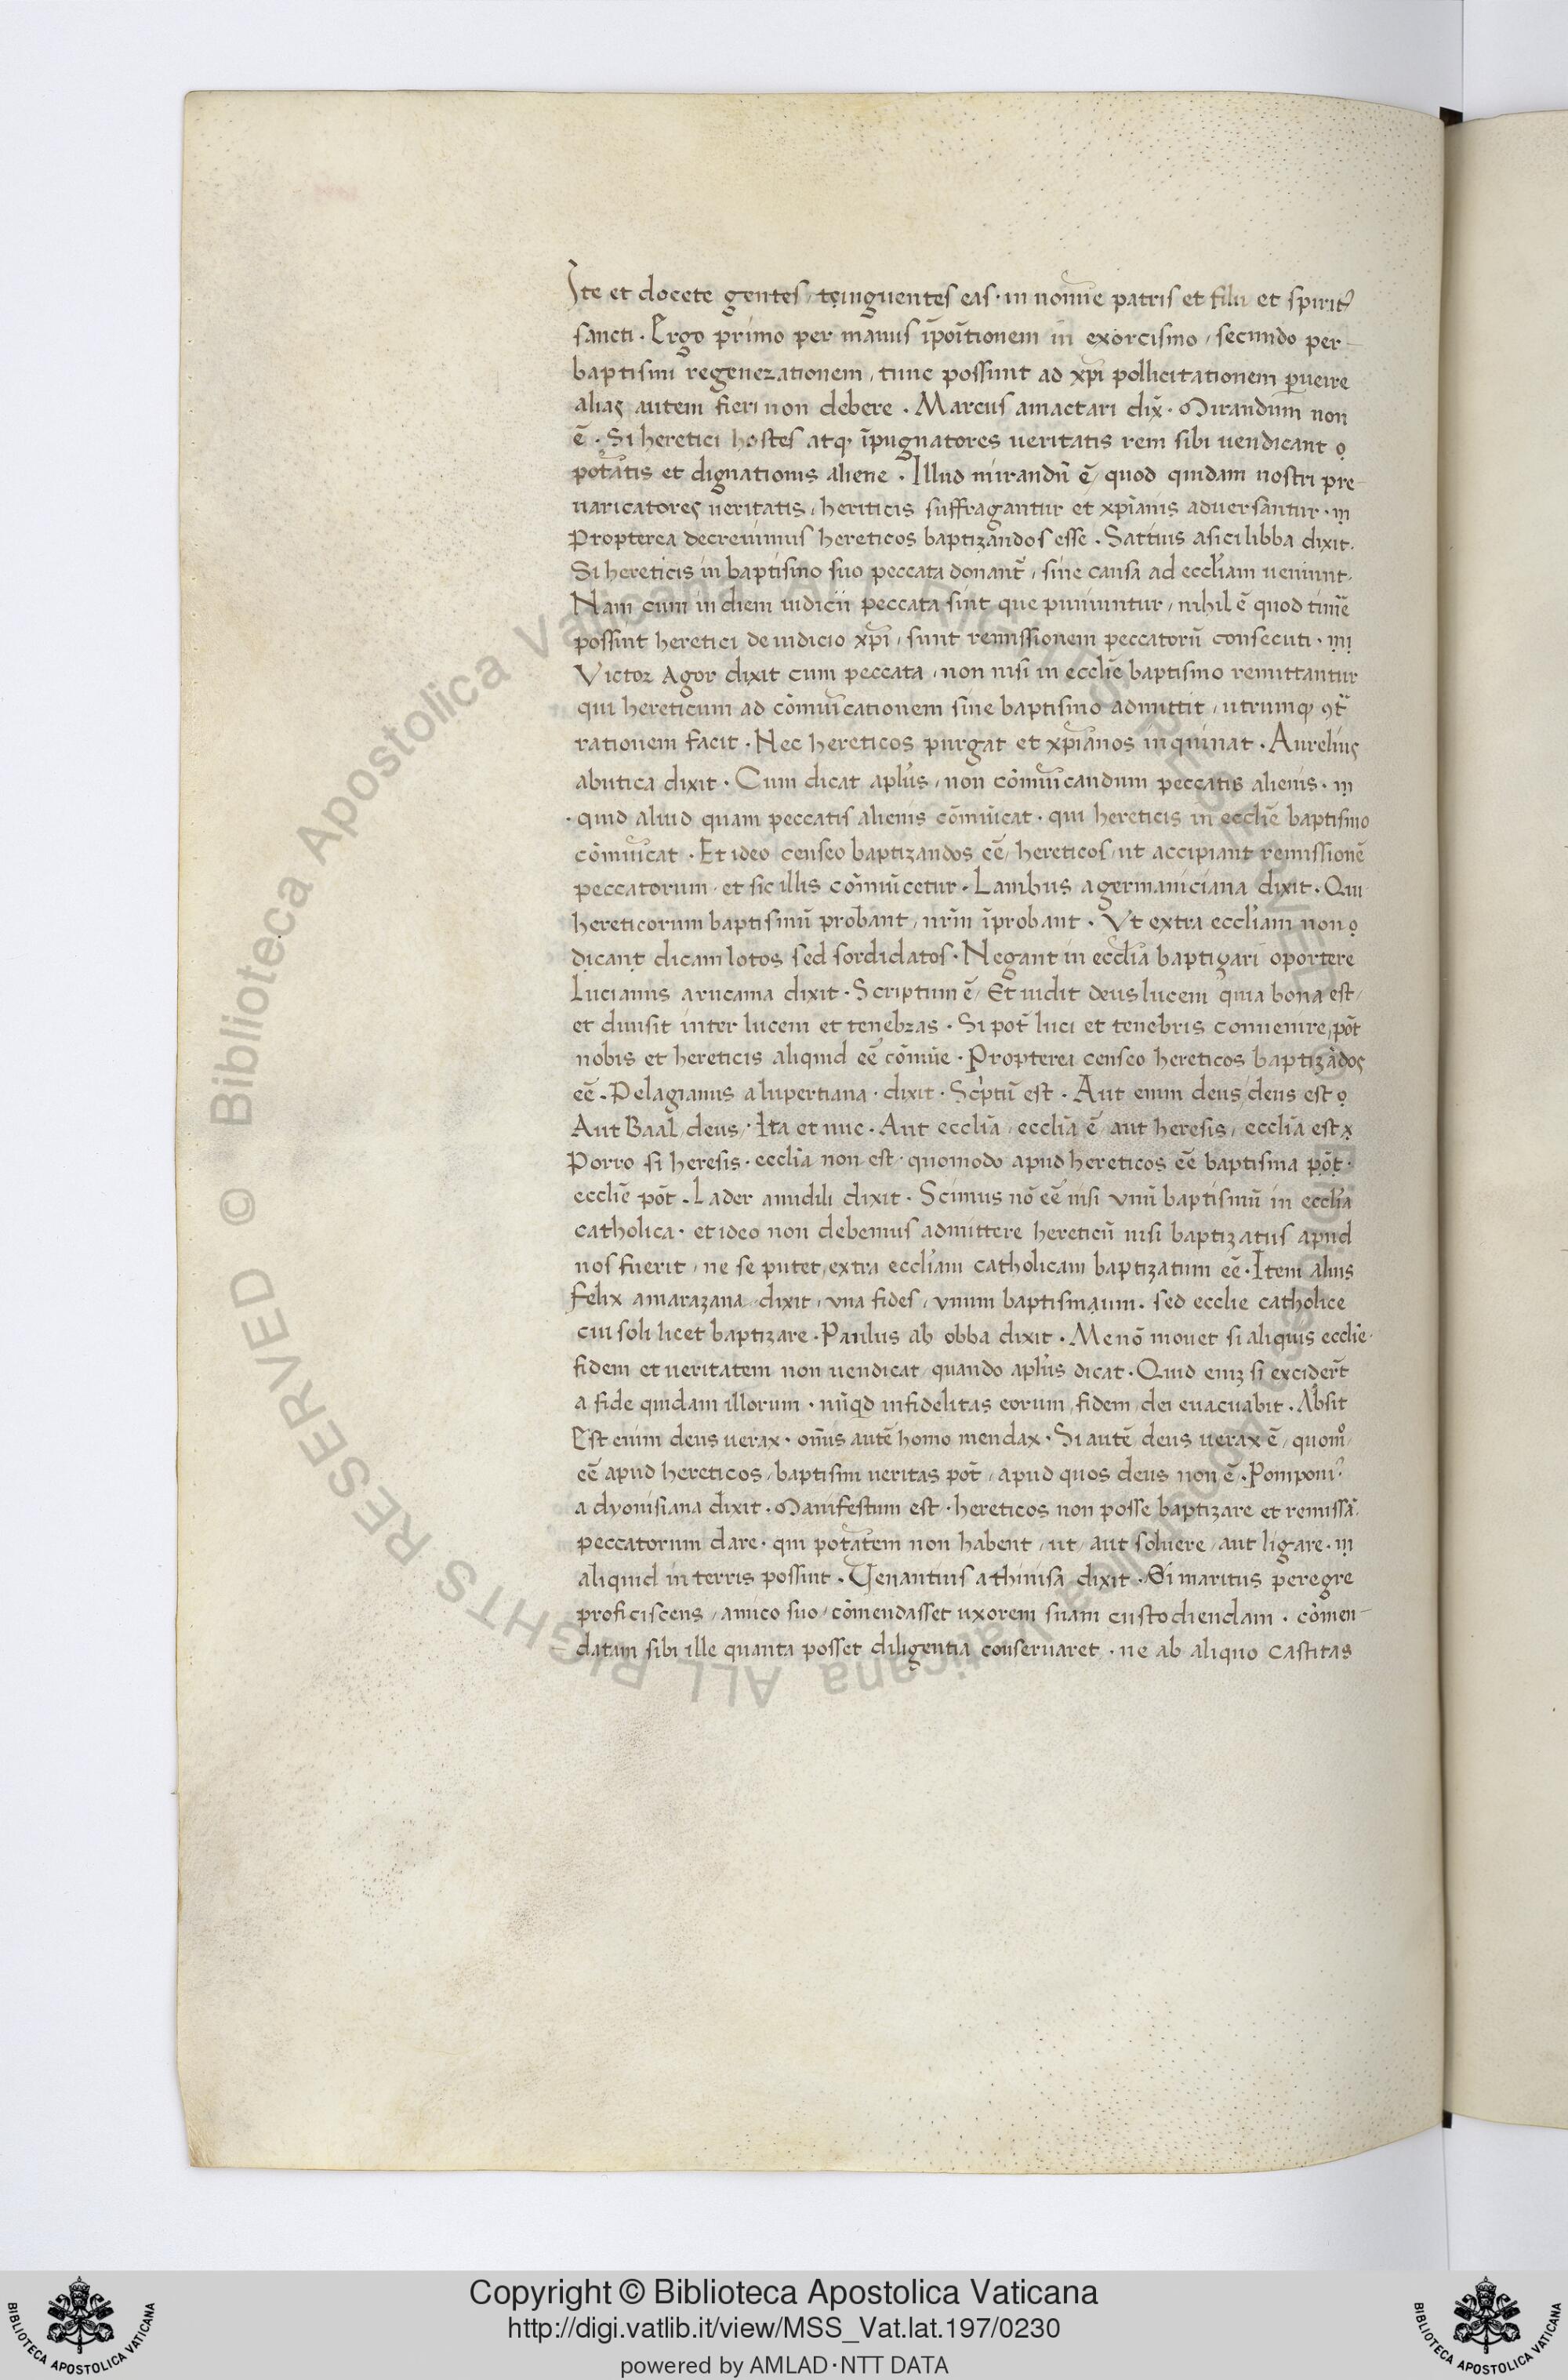 Ite et docete gentes, teinguentes eas · in noīe patris et filii et spiritꝰ
sancti · Ergo primo per manus īpoītionem in exorcismo, secundo per-
baptismi regenerationem, tunc possunt ad xp̄i pollicitationem ꝑueīre
alias autem fieri non debere · Marcus amactari dix̄ · Mirandum non
ē · Si heretici hostes atqꝫ īpugnatores ueritatis rem sibi uendicant
potātis et dignationis aliene · Illud mirandū ē, quod quidam nostri pre-
uaricatores ueritatis, heriticis suffragantur et xp̄ianis aduersantur ·
Propterea decreuimus hereticos baptizandos esse · Sattius asicilibba dixit ·
Si hereticis in baptismo suo peccata donant᷑, sine causa ad eccl̄iam ueniunt ·
Nam cum in diem iudicii peccata sint que puniuntur, nihil ē quod tim̄e
possint heretici de iudicio xp̄i, sunt remissionem peccatorū consecuti ·
Victor Agor dixit cum peccata, non nisi in eccliē baptismo remittantur
qui hereticum ad cōmūicationem sine baptismo admittit, utrumqꝫ ꝯt᷑
rationem facit · Nec hereticos purgat et xp̄ianos inquinat · Aurelius
abutica dixit · Cum dicat apl̄us, non cōmūicandum peccatis alienis ·
· quid aliud quam peccatis alienis cōmūicat · qui hereticis in eccliē baptismo
cōmūicat · Et ideo censeo baptizandos eē, hereticos, ut accipiant remissionē
peccatorum, et sic illis cōmūicetur · Lambus agermaniciana dixit · Qui
hereticorum baptismū probant, nr̄m īprobant · Vt extra eccl̄iam non
dicant dicam lotos sed sordidatos · Negant in eccl̄ia baptigari oportere
Lucianus arucama dixit · Scriptum ē, Et uidit deus lucem quia bona est,
et diuisit inter lucem et tenebras · Si pot᷑ luci et tenebris conuenire, pōt
nobis et hereticis aliquid eē cōmūe · Propterei censeo hereticos baptizādos
eē · Pelagianus alupertiana · dixit · Scp̄tū est · Aut enim deus, deus est
Aut Baal, deus, · Ita et nuc · Aut ecclīa, ecclīa ē, aut heresis, ecclīa est
Porro si heresis · ecclīa non est · quomodo apud hereticos eē baptisma pōt ·
eccliē pōt · Lader amidili dixit · Scimus nō eē nisi vnū baptismū in eccl̄ia
catholica · et ideo non debemus admittere hereticū nisi baptizatus apud
nos fuerit, ne se putet, extra eccl̄iam catholicam baptizatum eē · Item alius
Felix amarazana · dixit, vna fides, vnum baptismaum · sed ecclie catholice
cui soli licet baptizare · Paulus ab obba dixit · Me nō mouet si aliquis ecclīe ·
fidem et ueritatem non uendicat, quando apl̄us dicat · Quid eniꝫ si excider̄t
a fide quidam illorum · nūqd infidelitas eorum, fidem, dei euacuabit · Absit
Est enim deus uerax · om̄is autē homo mendax · Si autē deus uerax ē, quomͦ,
eē apud hereticos, baptismi ueritas pōt, apud quos deus non ē · Pomponiꝰ
a dyonisiana dixit · Manifestum est · hereticos non posse baptizare et remissā ·
peccatorum dare · qui potātem non habent, ut, aut soluere, aut ligare ·
aliquid in terris possint · Venantius athinisa dixit · Si maritus peregre
proficiscens, amico suo, cōmendasset uxorem suam custodiendam · cōmen-
datam sibi ille quanta posset diligentia conseruaret · ne ab aliquo castitas
© Biblioteca Apostolica Vaticana ALL RIGHTS RESERVED
Copyright © Biblioteca Apostolica Vaticana
http://digi.vatlib.it/view/MSS_Vat.lat.197/0230
powered by AMLAD·NTT DATA
BIBLIOTECA APOSTOLICA VATICANA
BIBLIOTECA APOSTOLICA VATICANA